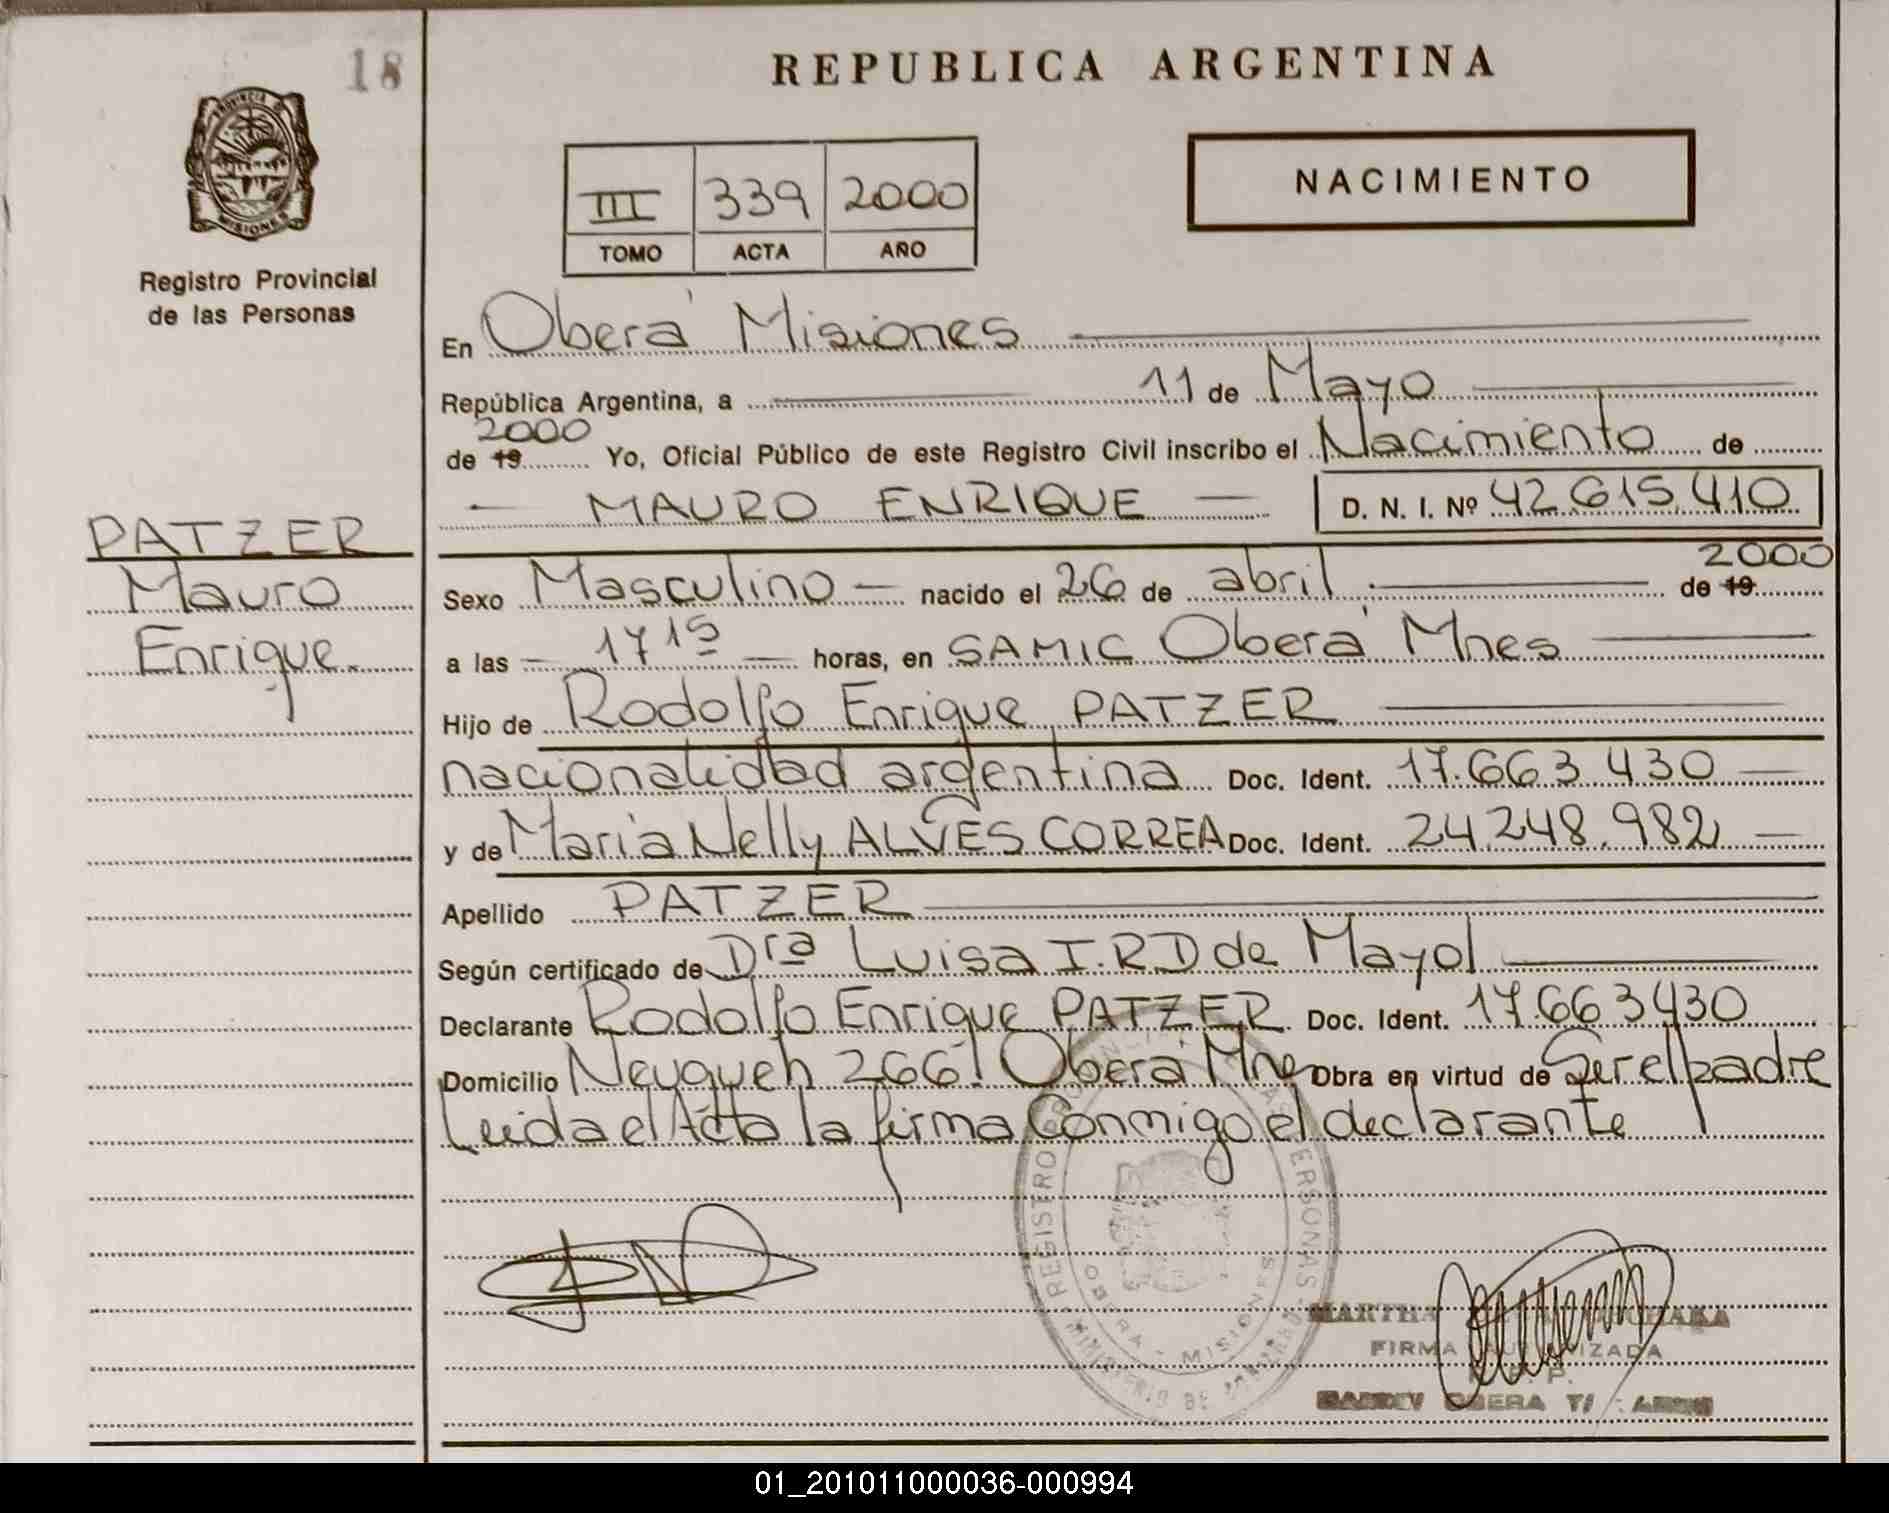 18
REPUBLICA ARGENTINA
PROVINCIA DE
MISIONES
Registro Provincial
de las Personas
III 339 2000
TOMO ACTA AÑO
NACIMIENTO
En Oberá Misiones
República Argentina, a 11 de Mayo
2000
de 19 Yo, Oficial Público de este Registro Civil inscribo el Nacimiento de
MAURO ENRIQUE D. N. I. Nº 42.615.410
PATZER
Mauro
Enrique
2000
Sexo Masculino nacido el 26 de abril de 19
a las 17 15 horas, en SAMIC Oberá Mnes
Hijo de Rodolfo Enrique PATZER
nacionalidad argentina Doc. Ident. 17.663.430
y de Maria Nelly ALVES CORREA Doc. Ident. 24.248.982
Apellido PATZER
Según certificado de Dra Luisa I.R.D de Mayol
Declarante Rodolfo Enrique PATZER Doc. Ident. 17.663430
Domicilio Neuquen 266! Oberá Mnes Obra en virtud de Ser el padre
Leida el Acta la firma Conmigo el declarante
REGISTRO PERSONAS
OBERA - MISIONES
MINISTERIO DE
MARTHA
FIRMA AUTORIZADA
R. P. P.
OBERA
01_201011000036-000994